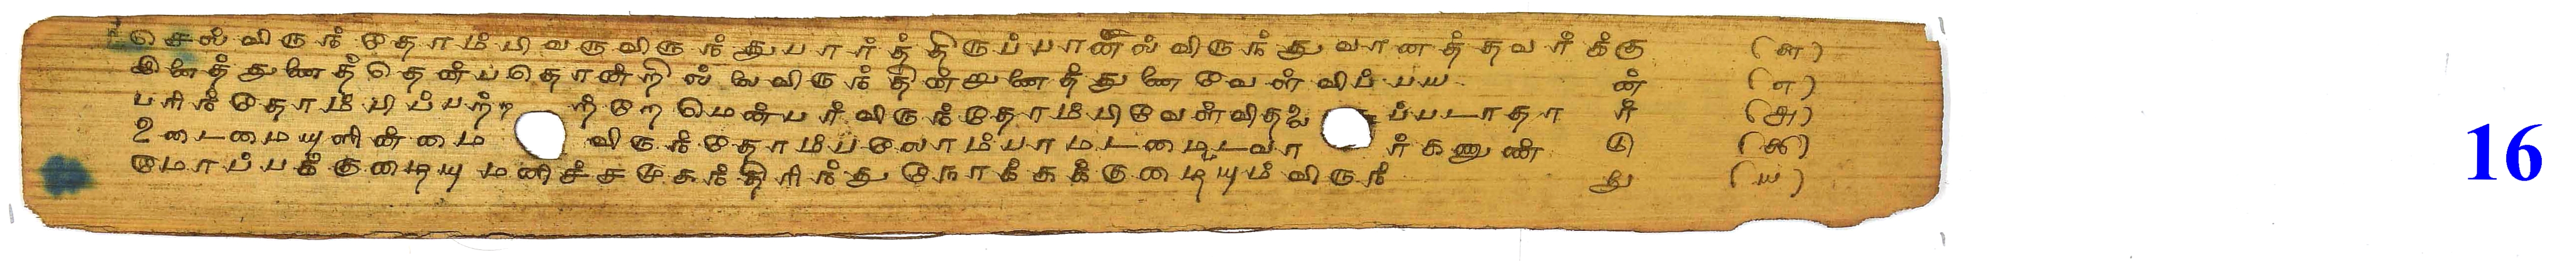 செல்விருந்தோம்பிவருவிருந்துபார்த்திருப்பான்நல்விருந்துவானத்தவர்க்கு (௬)
இனைத்துணைத்தென்பதொன்றில்லைவிருந்தின்றுணைத்துணைவேள்விப்பயன் (௭)
பரிந்தோம்பிப்பற்றற்றேமென்பர்விருந்தோம்பிவேள்விதலைப்படாதார் (௮)
உடைமையுளின்மைவிருந்தோம்பலோம்பாமடமைமடவார்கணுண்டு (௯)
மோப்பக்குழையுமனிச்சமுகந்திரிந்துநோக்கக்குழையும்விருந்து (௰)
16